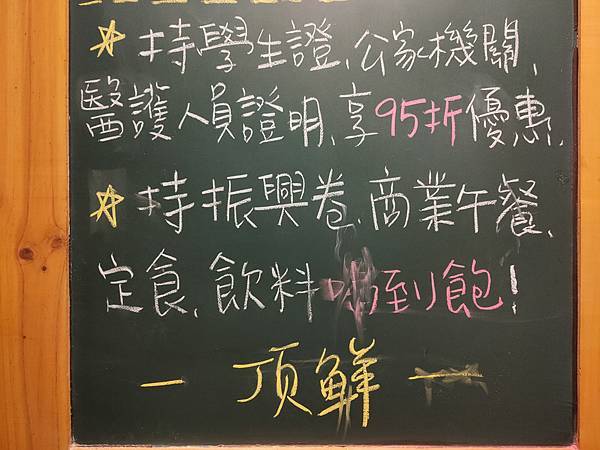 ★持學生證、公家機關、
醫護人員證明、享95折優惠.
★持振興卷、商業午餐、
定食、飲料喝到飽!
— 頂鮮 —